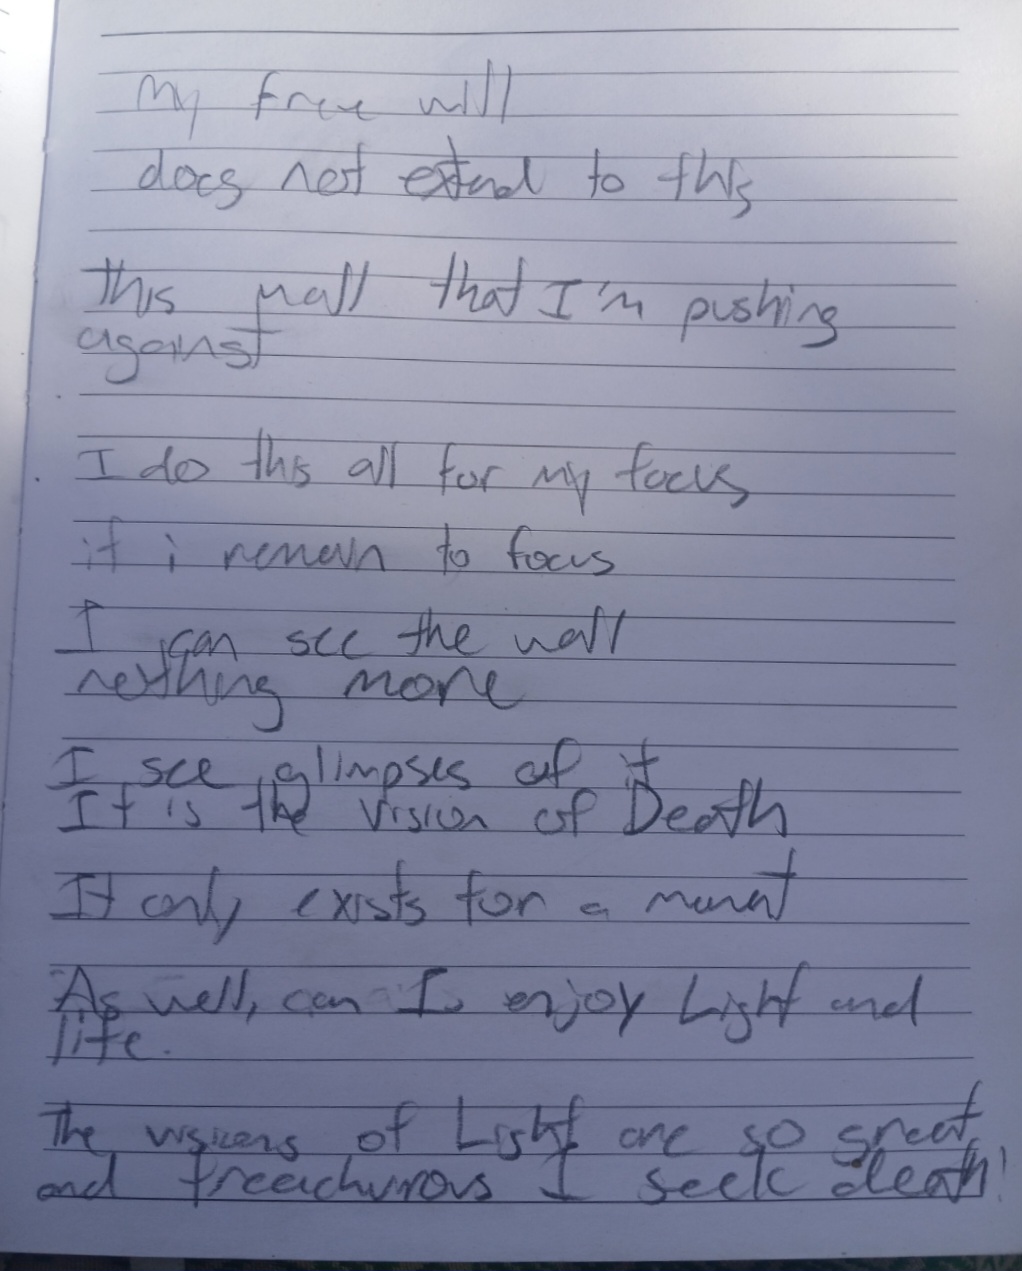 My free will
does not extend to this
this wall that I'm pushing
against
I do this all for my focus
if i remain to focus
I can see the wall
nothing more
I see glimpses of it
It is the vision of Death
It only exists for a moment
As well, can I enjoy Light and
life.
The visions of Light are so great
and treachurous I seek death!